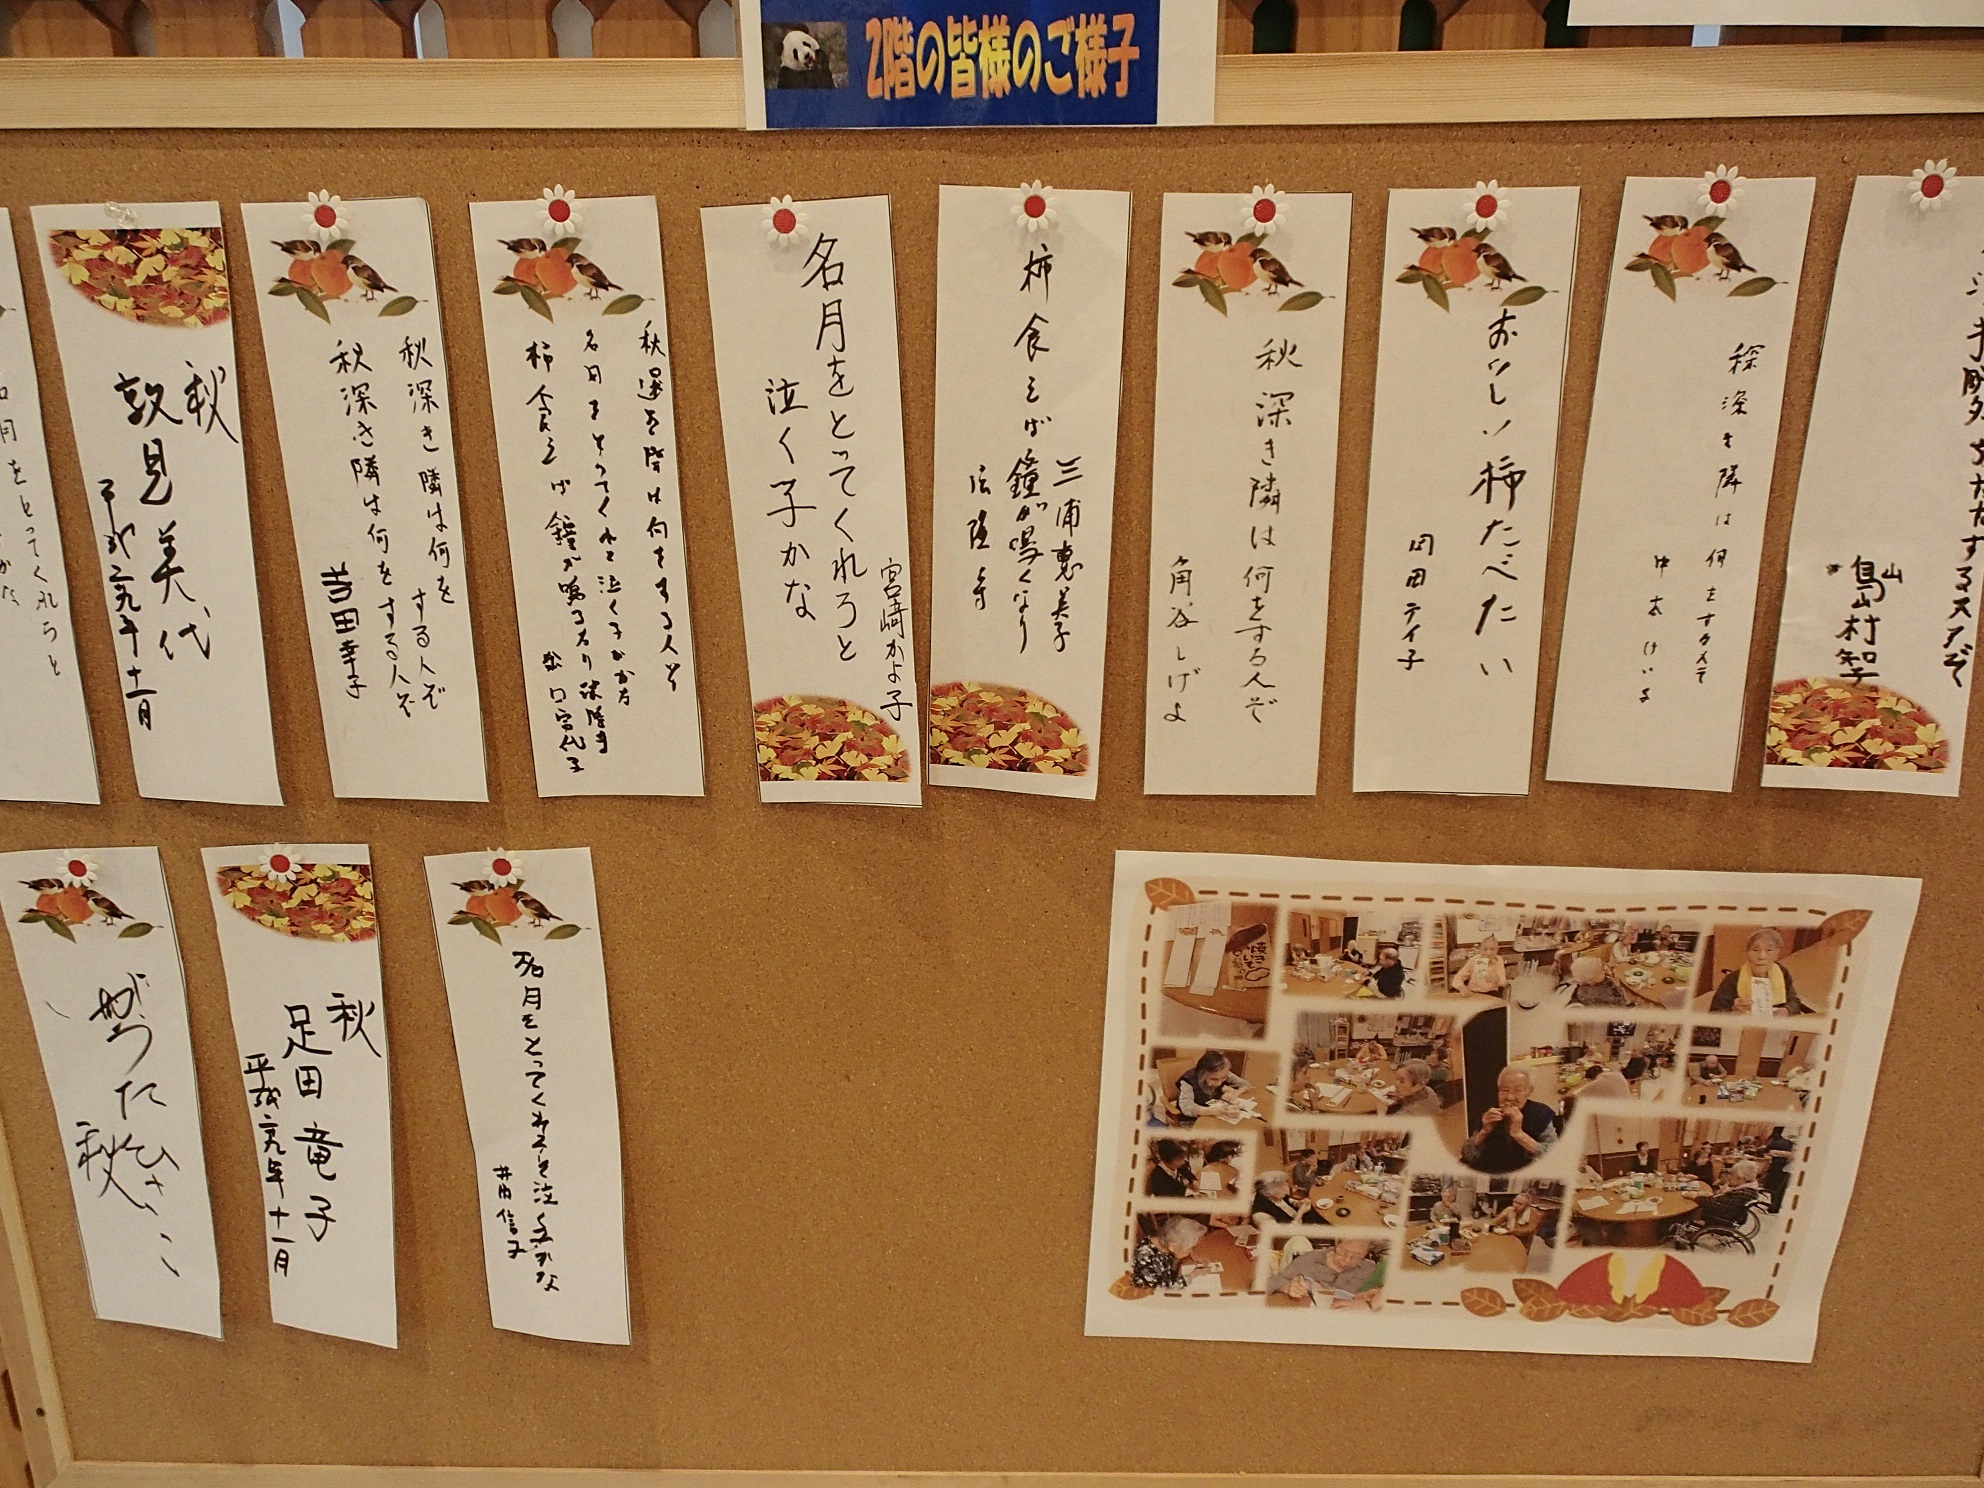 2階の皆様のご様子
手助ちたたするスだぞ
島村智
山
深き隣は何をする人ぞ
おいしい柿たべたい
岡田テイ子
秋深き隣は何をする人ぞ
角谷しげよ
三浦恵美子
柿食えば鐘が鳴くなり
法隆寺
宮崎かよ子
名月をとってくれろと
泣く子かな
名月をとってくれと泣く子かな
柿食えば鐘が鳴るなり法隆寺
秋深き隣は何を
する人ぞ
秋深き隣は何をする人ぞ
吉田幸子
秋
敦見美代
平成二九年十一月
名月をとってくれろと
名月をとってくれろと泣く子かな
井内信子
秋
足田竜子
平成二九年十一月
秋